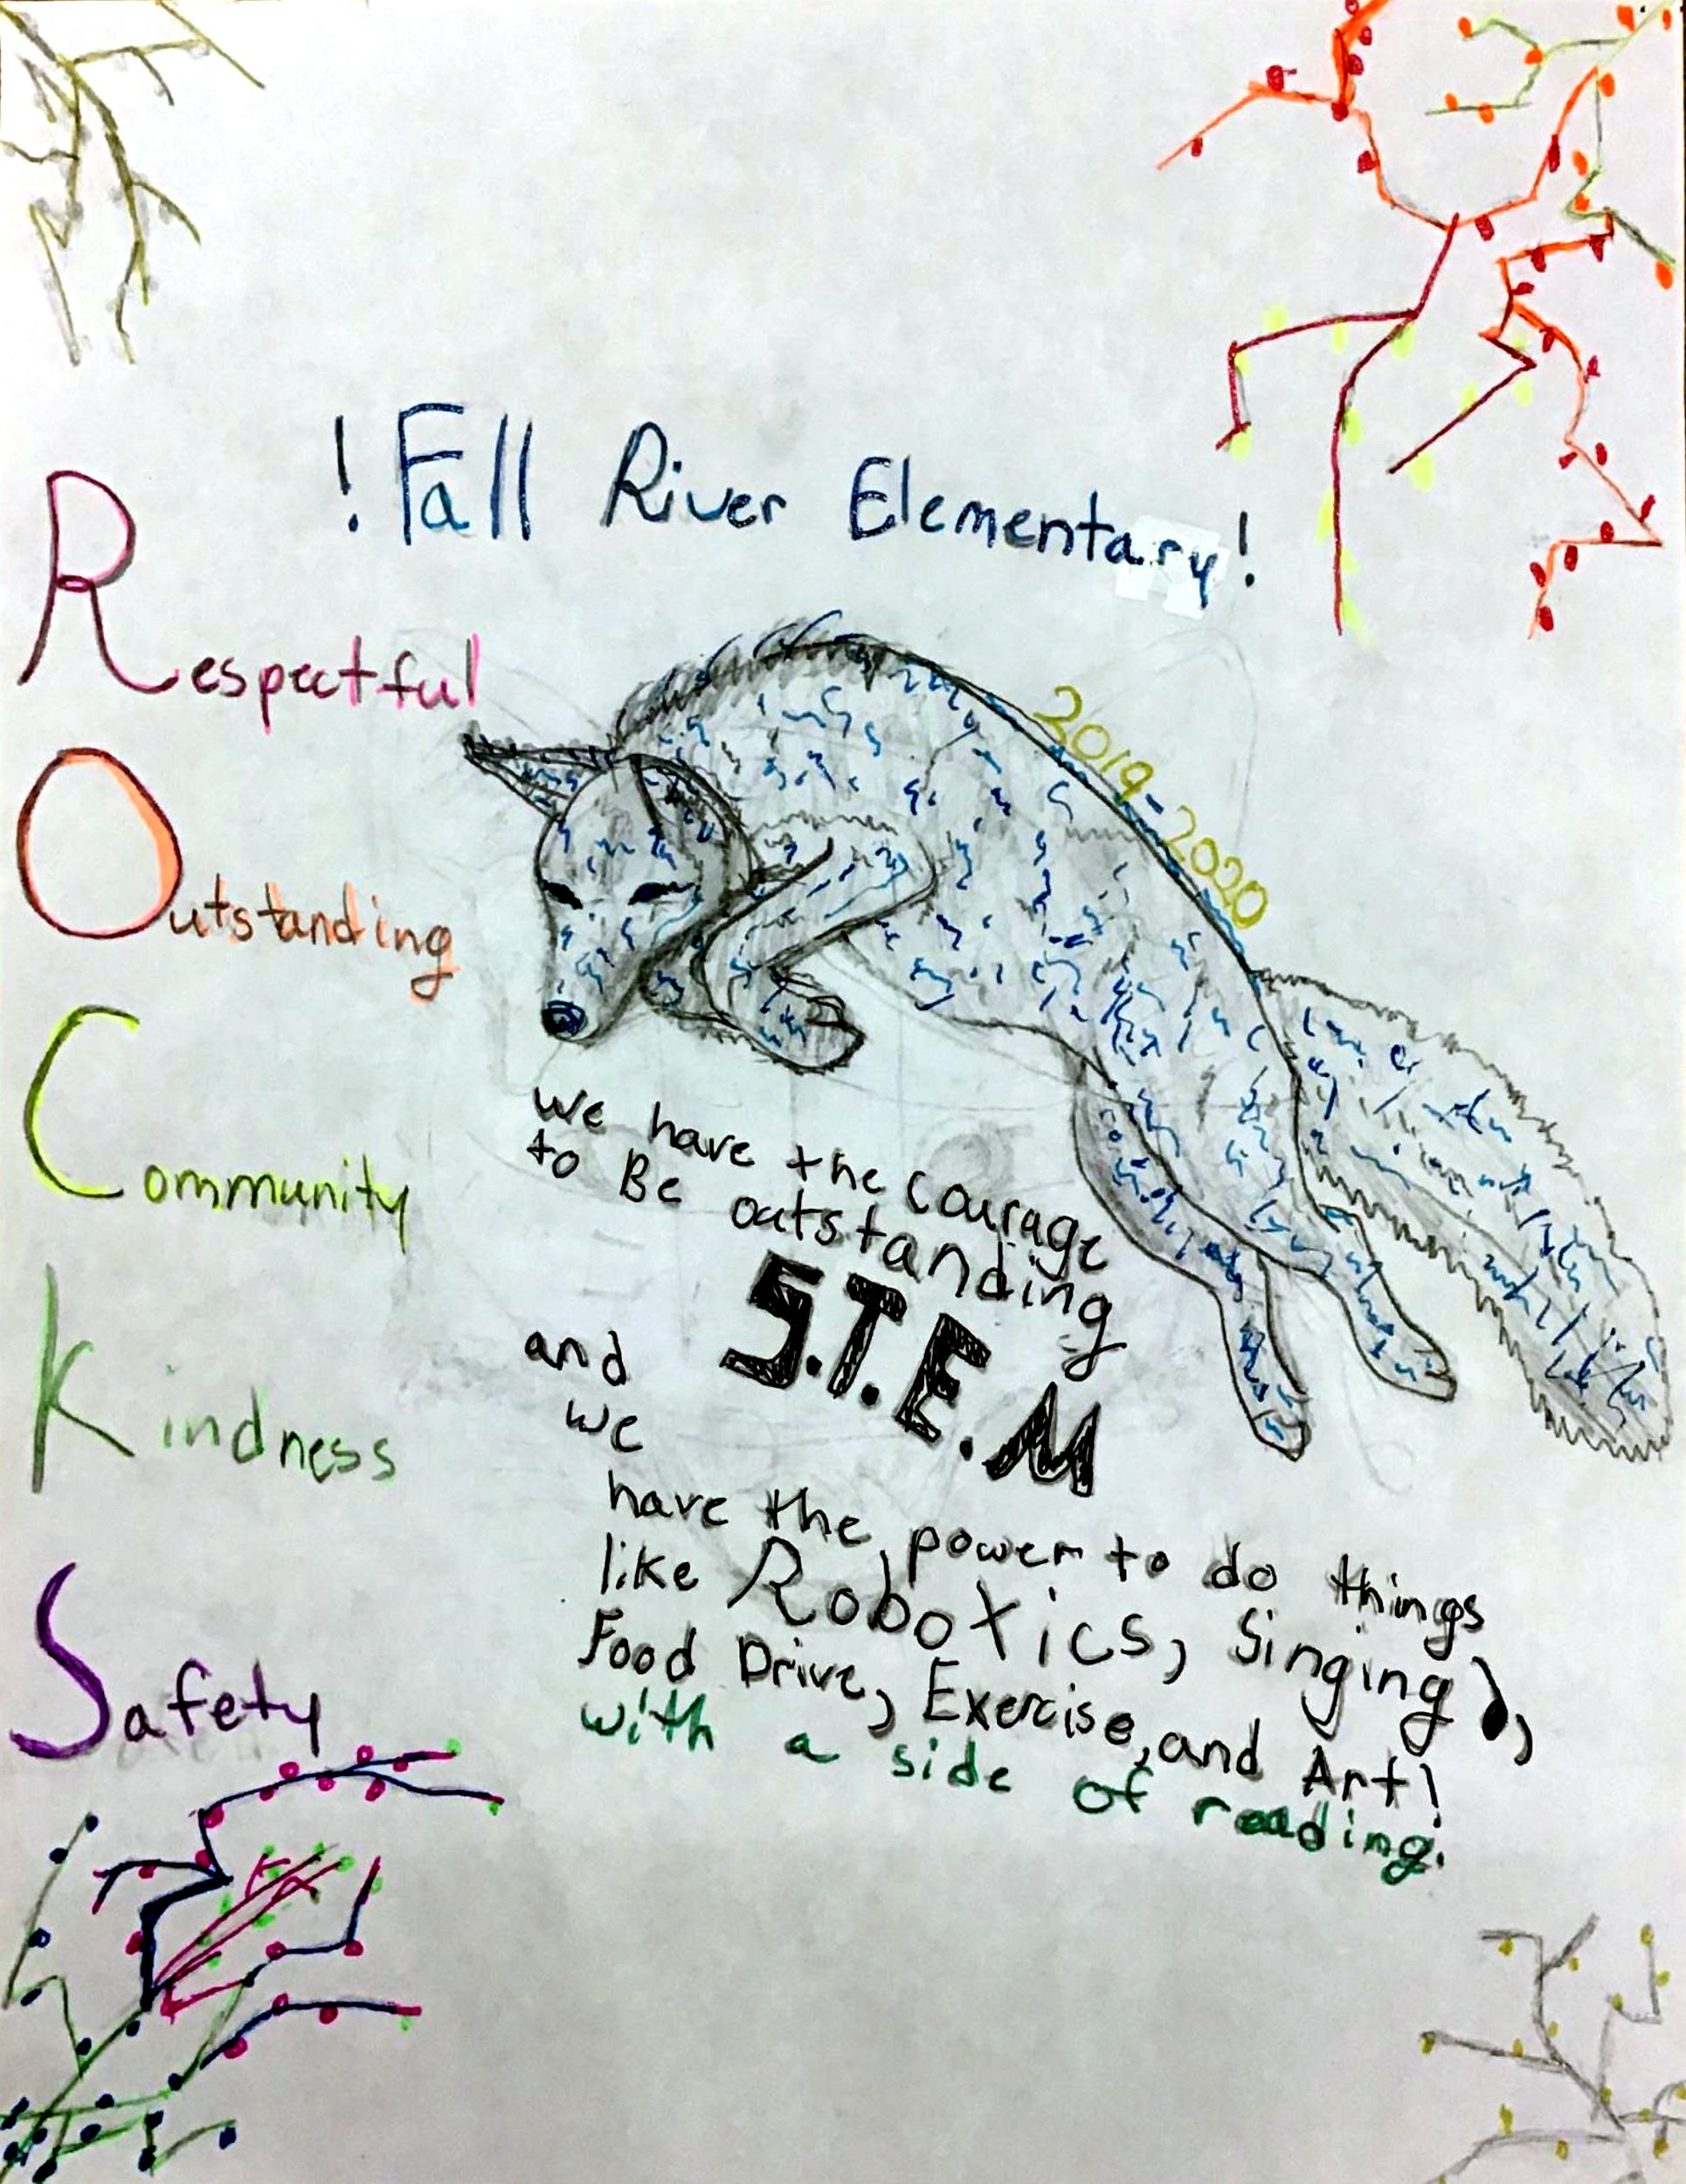 ! Fall River Elementary!
Respectful
Outstanding
Community
Kindness
Safety
2019-2020
we have the courage
to Be outstanding
S.T.E.M
and
we
have the power to do things
like Robotics, Singing,
Food Drive, Exercise, and Art!
with a side of reading.